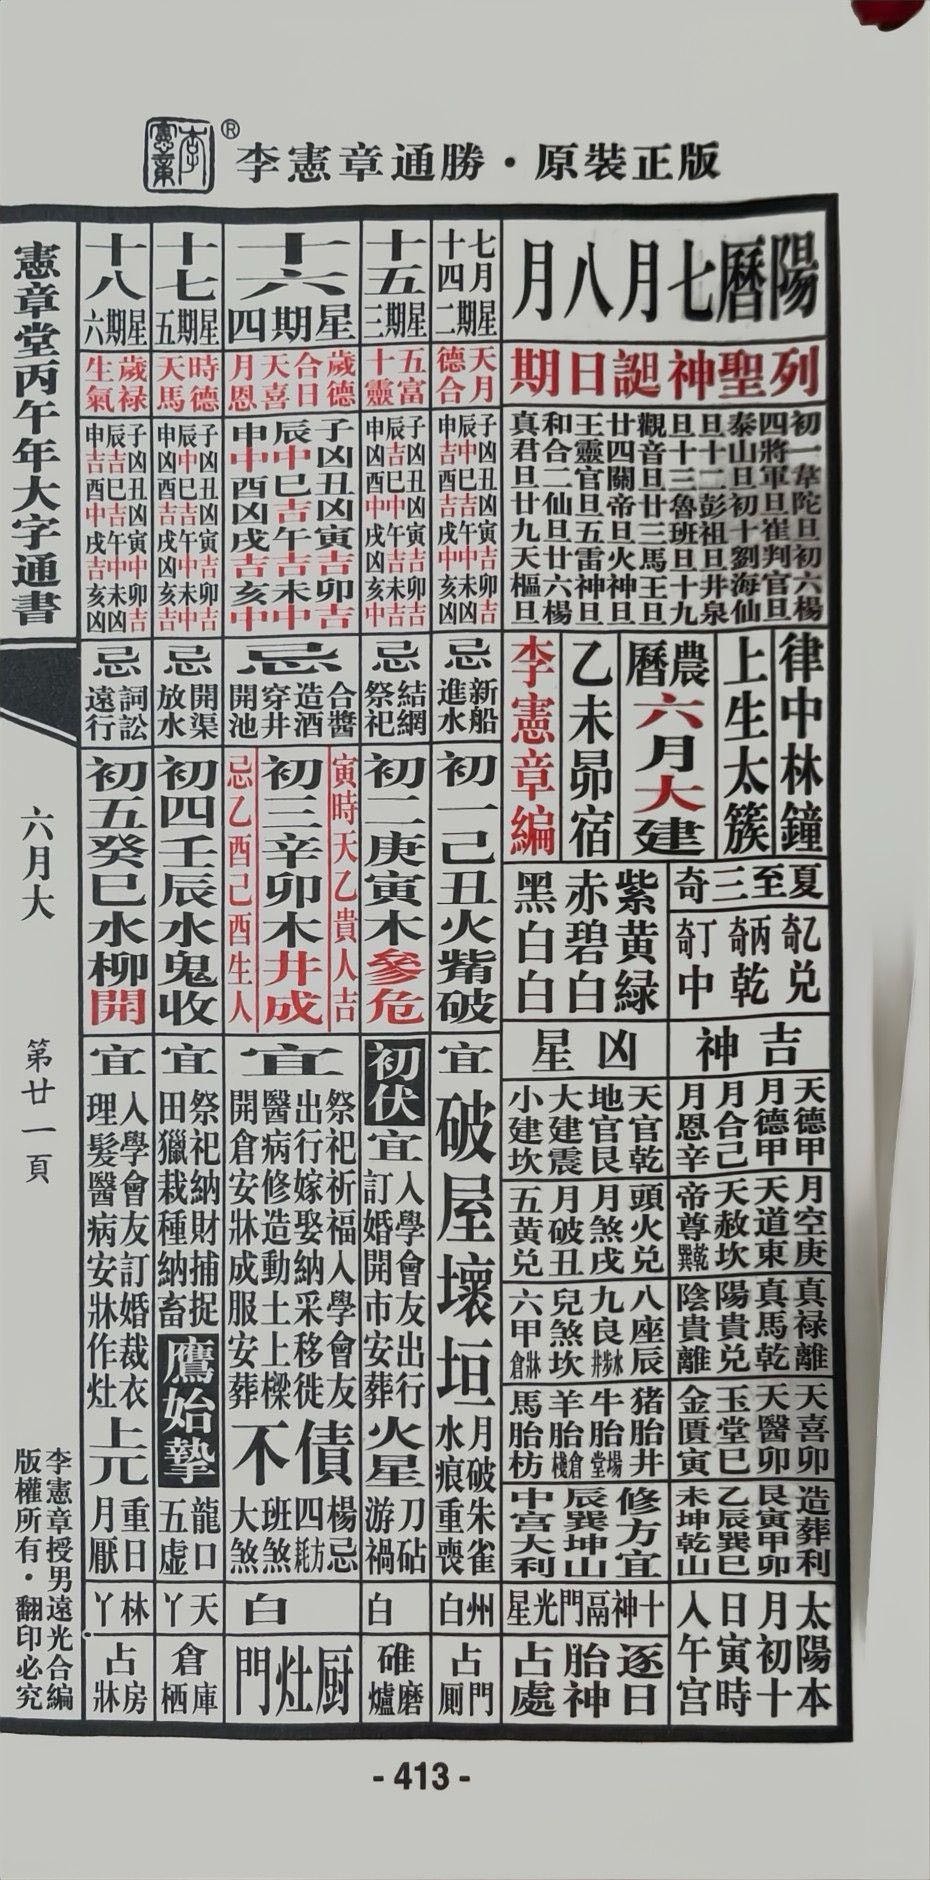 李憲章
®
李憲章通勝・原裝正版
陽曆七月八月
列聖神誕日期
初一韋陀旦初六楊
四將軍旦崔判官旦
泰山旦初十劉海仙
旦十二彭祖旦井泉
旦十三魯班旦十九
觀音旦廿三馬王旦
廿四關帝旦火神旦
王靈官旦五雷神旦
和合二仙旦廿六楊
真君旦廿九天樞旦
律中林鐘
上生太簇
農曆六月大建
乙未昴宿
李憲章編
夏至三奇
乙奇兌
丙奇乾
丁奇中
紫黃綠
赤碧白
黑白白
吉神
天德甲
月德甲
月合己
月恩辛
月空庚
天道東
天赦坎
帝尊乾巽
真祿離
真馬乾
陽貴兌
陰貴離
天喜卯
天醫卯
玉堂巳
金匱寅
造葬利
艮寅甲卯
乙辰巽巳
未坤乾山
太陽本
月初十
日寅時
入午宮
凶星
天官乾
地官艮
大建震
小建坎
頭火兌
月煞戌
月破丑
五黃兌
八座辰
九良水步井
兒煞坎
六甲牀倉
猪胎井
牛胎場堂
羊胎倉棧
馬胎枋
修方宜
辰巽坤山
中宮大利
十神鬲門光星
逐日
胎神
占處
七月
十四
星期二
天月
德合
子凶丑凶寅吉卯吉
辰中巳吉午中未凶
申吉酉吉戌中亥凶
忌
新船
進水
初一己丑火觜破
宜
破屋壞垣
月破朱雀
水痕重喪
州白
占門
廁
十五
星期三
五富
十靈
子凶丑凶寅吉卯吉
辰吉巳中午吉未吉
申凶酉中戌吉亥中
忌
結網
祭祀
初二庚寅木參危
初伏
宜
入學會友出行
訂婚開市安葬
火星
刀砧
游禍
白
碓磨
爐
十六
星期四
歲德
合日
天喜
月恩
子凶丑凶寅吉卯吉
辰中巳吉午吉未中
申中酉凶戌吉亥中
忌
合醬
造酒
穿井
開池
寅時天乙貴人吉
初三辛卯木井成
忌乙酉己酉生人
宜
祭祀祈福入學會友
出行嫁娶納采移徙
醫病修造動土上樑
開倉安牀成服安葬
債不
楊忌
四方耗
班煞
大煞
白
厨灶門
十七
星期五
時德
天馬
子凶丑凶寅吉卯吉
辰中巳吉午中未中
申凶酉吉戌凶亥吉
忌
開渠
放水
初四壬辰水鬼收
宜
祭祀納財捕捉
田獵栽種納畜
鷹始摯
龍口
五虛
天丫
倉庫
栖
十八
星期六
歲祿
生氣
子凶丑凶寅中卯吉
辰吉巳吉午中未凶
申吉酉中戌吉亥凶
忌
詞訟
遠行
初五癸巳水柳開
宜
入學會友訂婚裁衣
理髮醫病安牀作灶
上元
重日
月厭
林丫
占房
牀
憲章堂丙午年大字通書
六月大
第廿一頁
李憲章授男遠光合編
版權所有・翻印必究
- 413 -